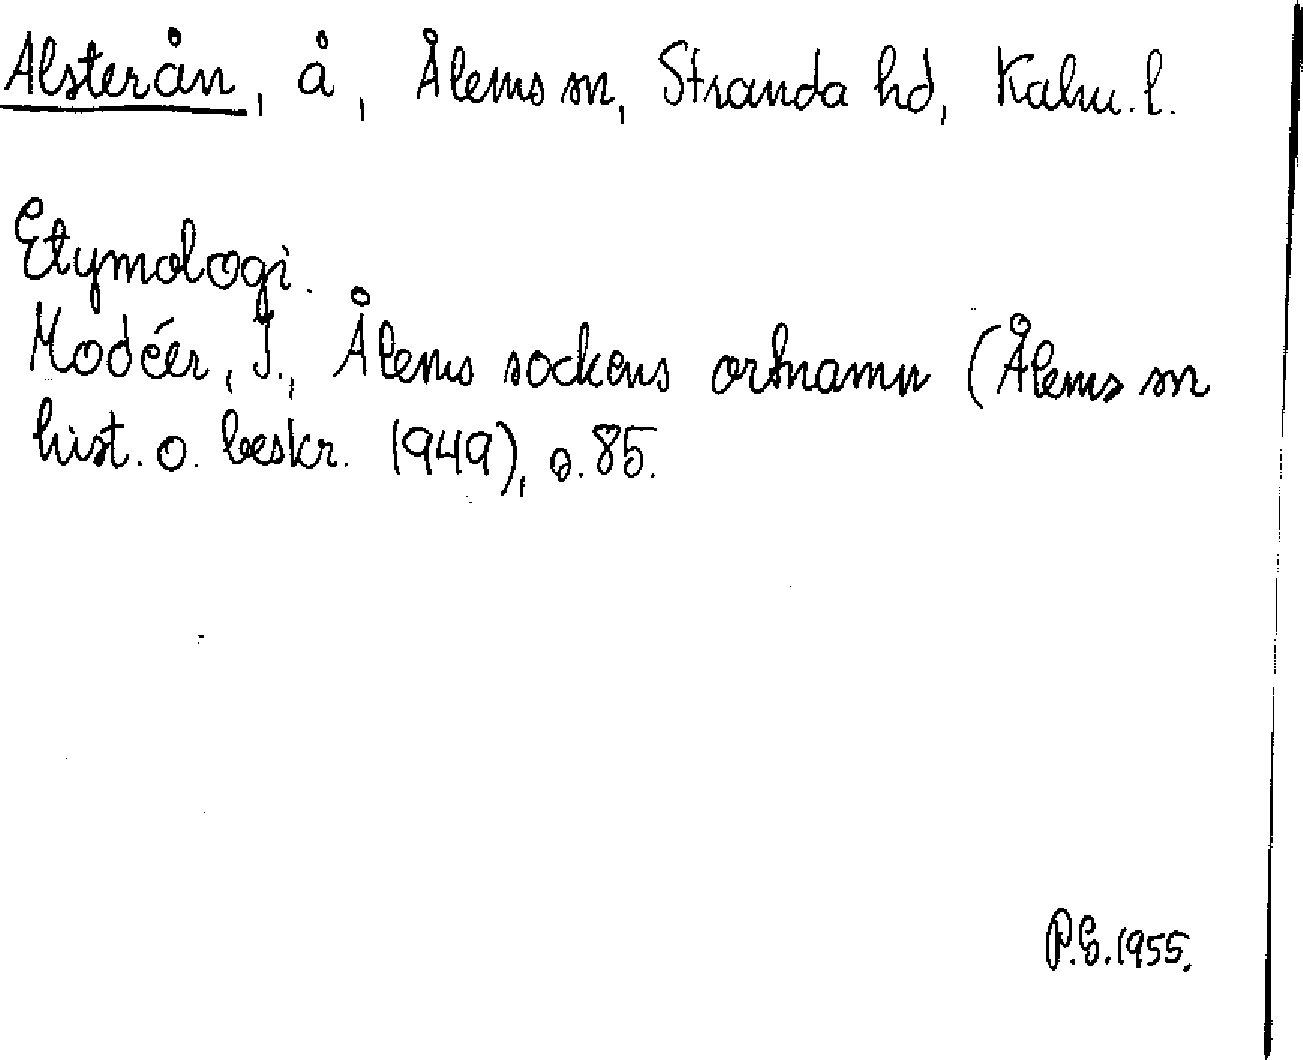 Alsterån, å, Ålems sn, Stranda hd, Kalm. l.
Etymologi.
Modéer, I., Ålems sockens ortnamn (Ålems sn
hist. o. beskr. 1949), s. 85.
P.G. 1955.